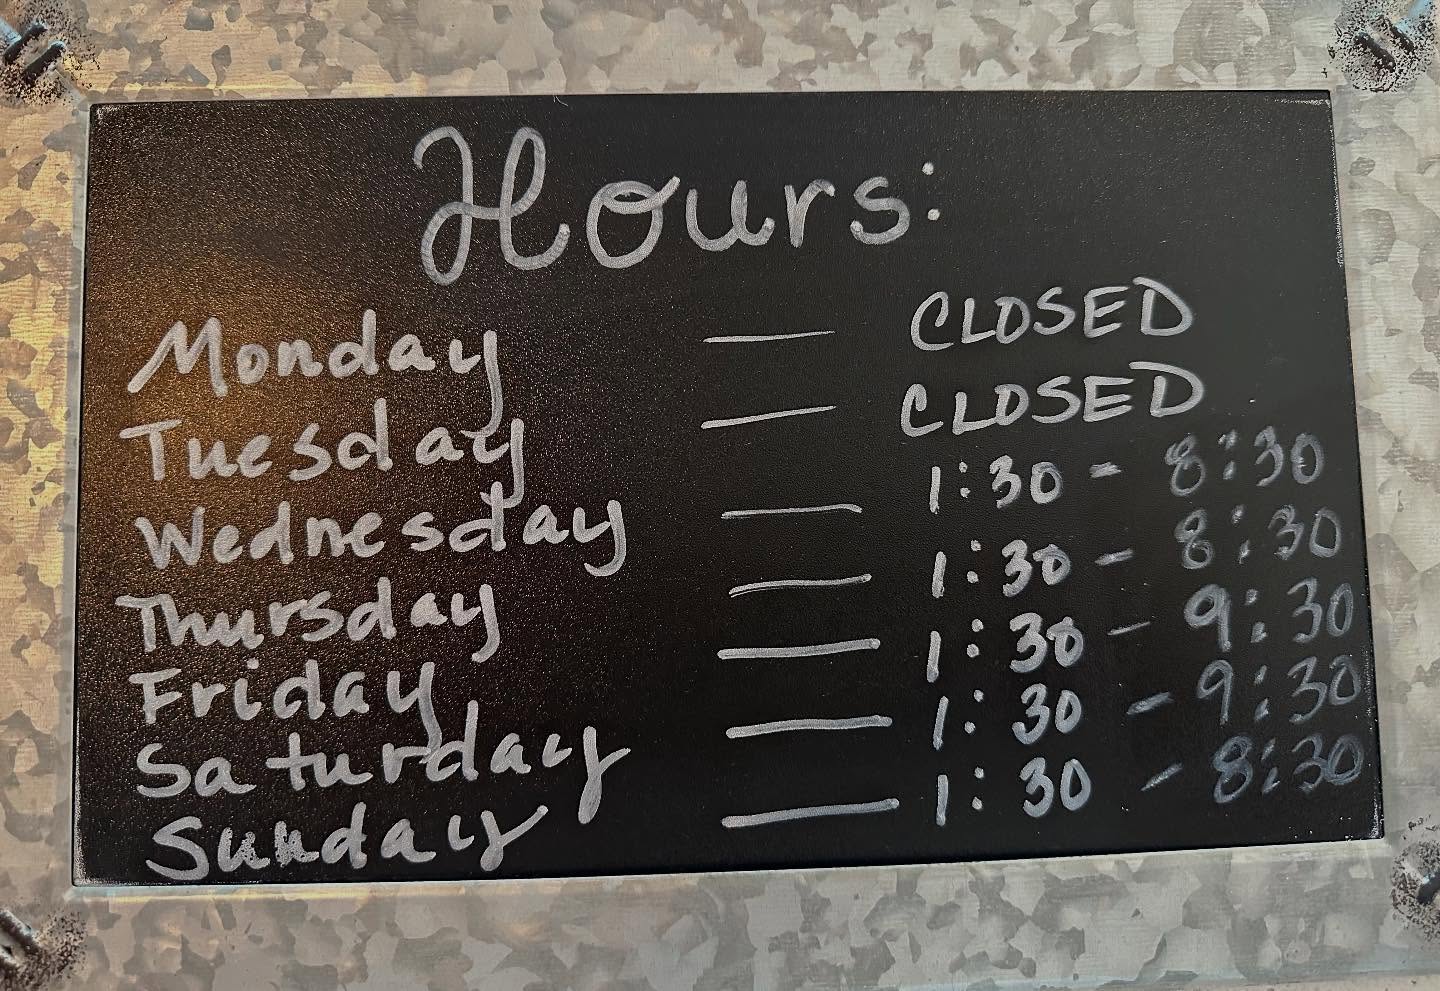 Hours:
Monday — CLOSED
Tuesday — CLOSED
Wednesday — 1:30 - 8:30
Thursday — 1:30 - 8:30
Friday — 1:30 - 9:30
Saturday — 1:30 - 9:30
Sunday — 1:30 - 8:30